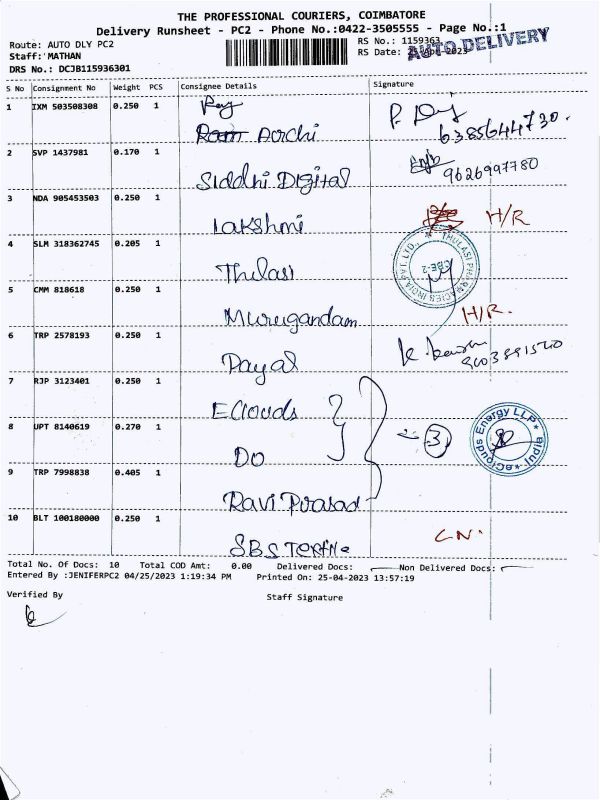 THE PROFESSIONAL COURIERS, COIMBATORE
Delivery Runsheet - PC2 - Phone No.:0422-3505555 - Page No.:1
Route: AUTO DLY PC2
RS No.: 1159363
AUTO DELIVERY
Staff: MATHAN
RS Date: 25-Apr-2023
DRS No.: DCJB115936301
S No Consignment No Weight PCS Consignee Details Signature
1 IXM 503508308 0.250 1
Aarchi
6385644730.
2 SVP 1437981 0.170 1
Siddhi Digital
9626997780
3 NDA 905453503 0.250 1
Lakshmi
H/R
4 SLM 318362745 0.205 1
Thulasi
THULASI PHARMACIES INDIA PVT. LTD.,
CBE-2
5 CMM 818618 0.250 1
Murugandam
H/R.
6 TRP 2578193 0.250 1
Payal
7 RJP 3123401 0.250 1
EClouds
8 UPT 8140619 0.270 1
DO
3
eClouds Energy LLP
India
9 TRP 7998838 0.405 1
Ravi Prasad
10 BLT 100180000 0.250 1
SBS Textile
CN.
Total No. Of Docs: 10 Total COD Amt: 0.00 Delivered Docs: Non Delivered Docs:
Entered By :JENIFERPC2 04/25/2023 1:19:34 PM Printed On: 25-04-2023 13:57:19
Verified By Staff Signature